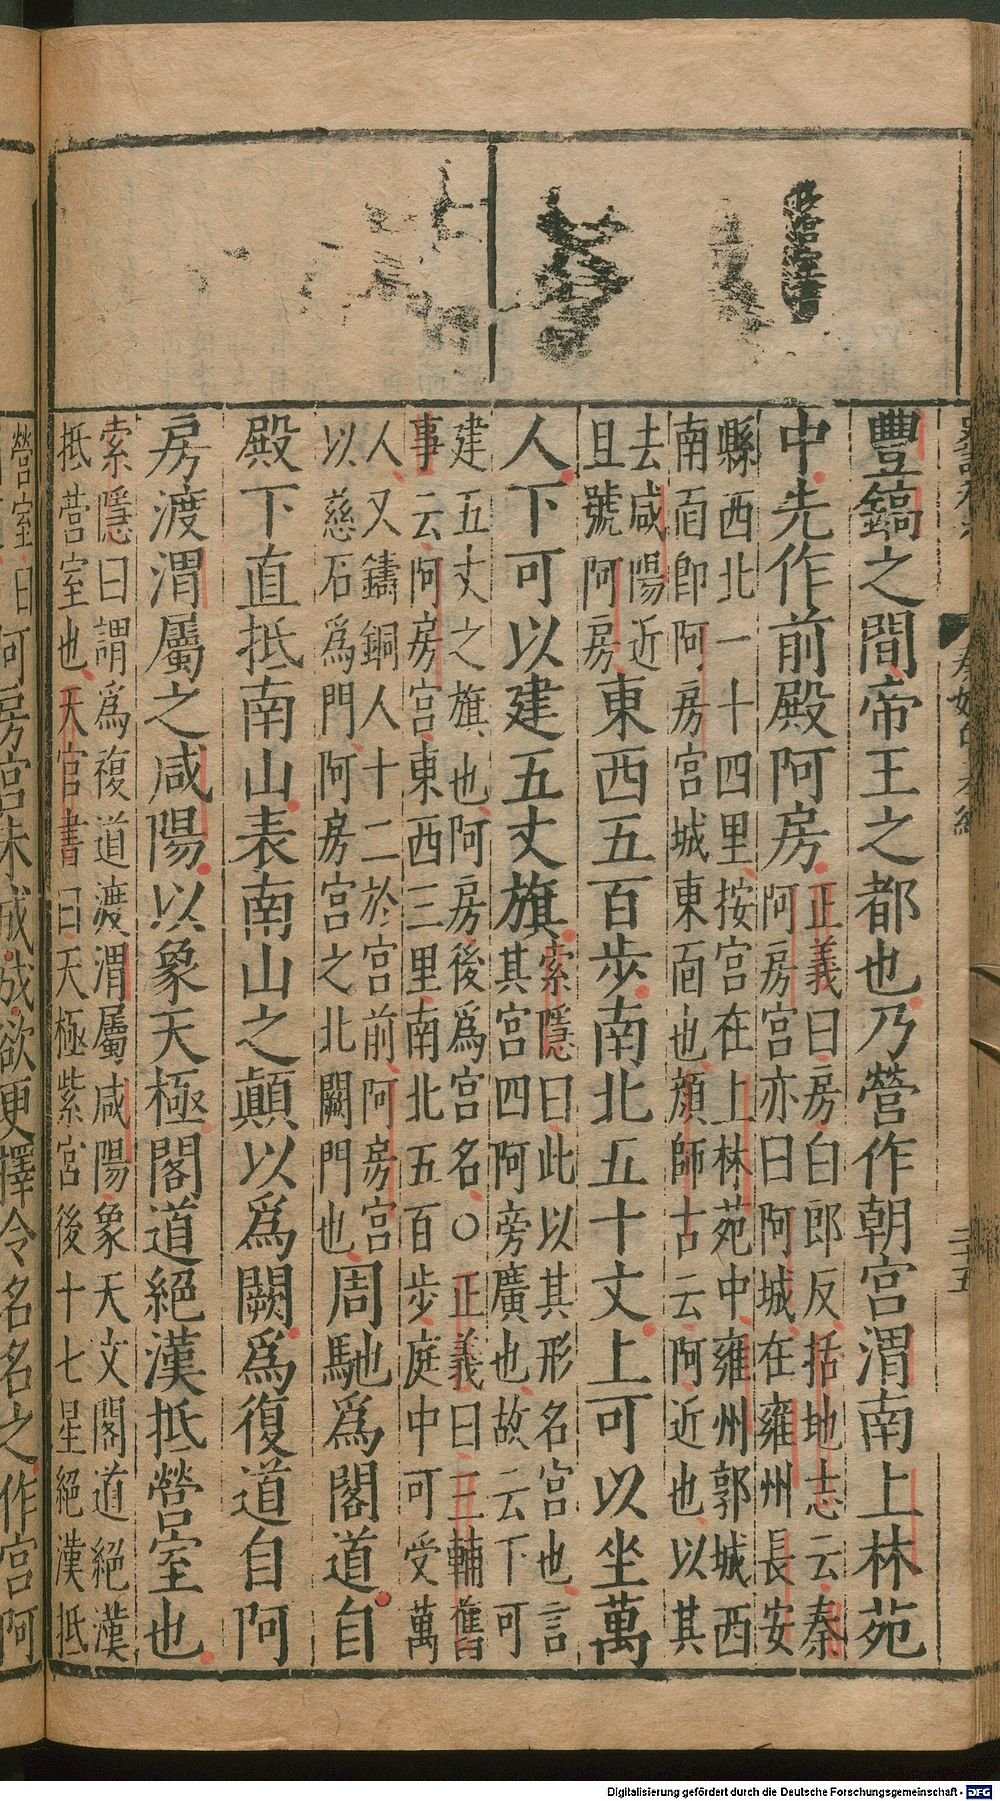 豐鎬之間帝王之都也乃營作朝宮渭南上林苑
中先作前殿阿房
正義曰房白郎反括地志云秦
阿房宮亦曰阿城在雍州長安
縣西北一十四里按宮在上林苑中雍州郭城西
南面即阿房宮城東面也顔師古云阿近也以其
去咸陽近
且號阿房
東西五百步南北五十丈上可以坐萬
人下可以建五丈旗
索隱曰此以其形名宮也言
其宮四阿旁廣也故云下可
建五丈之旗也阿房後爲宮名○正義曰三輔舊
事云阿房宮東西三里南北五百步庭中可受萬
人又鑄銅人十二於宮前阿房宮
以慈石爲門阿房宮之北闕門也
周馳爲閣道自
殿下直抵南山表南山之顛以爲闕爲復道自阿
房渡渭屬之咸陽以象天極閣道絕漢抵營室也
索隱曰謂爲複道渡渭屬咸陽象天文閣道絕漢
抵營室也天官書曰天極紫宮後十七星絕漢抵
營室曰
阿房宮未成成欲更擇令名名之作宮阿
Digitalisierung gefördert durch die Deutsche Forschungsgemeinschaft - DFG